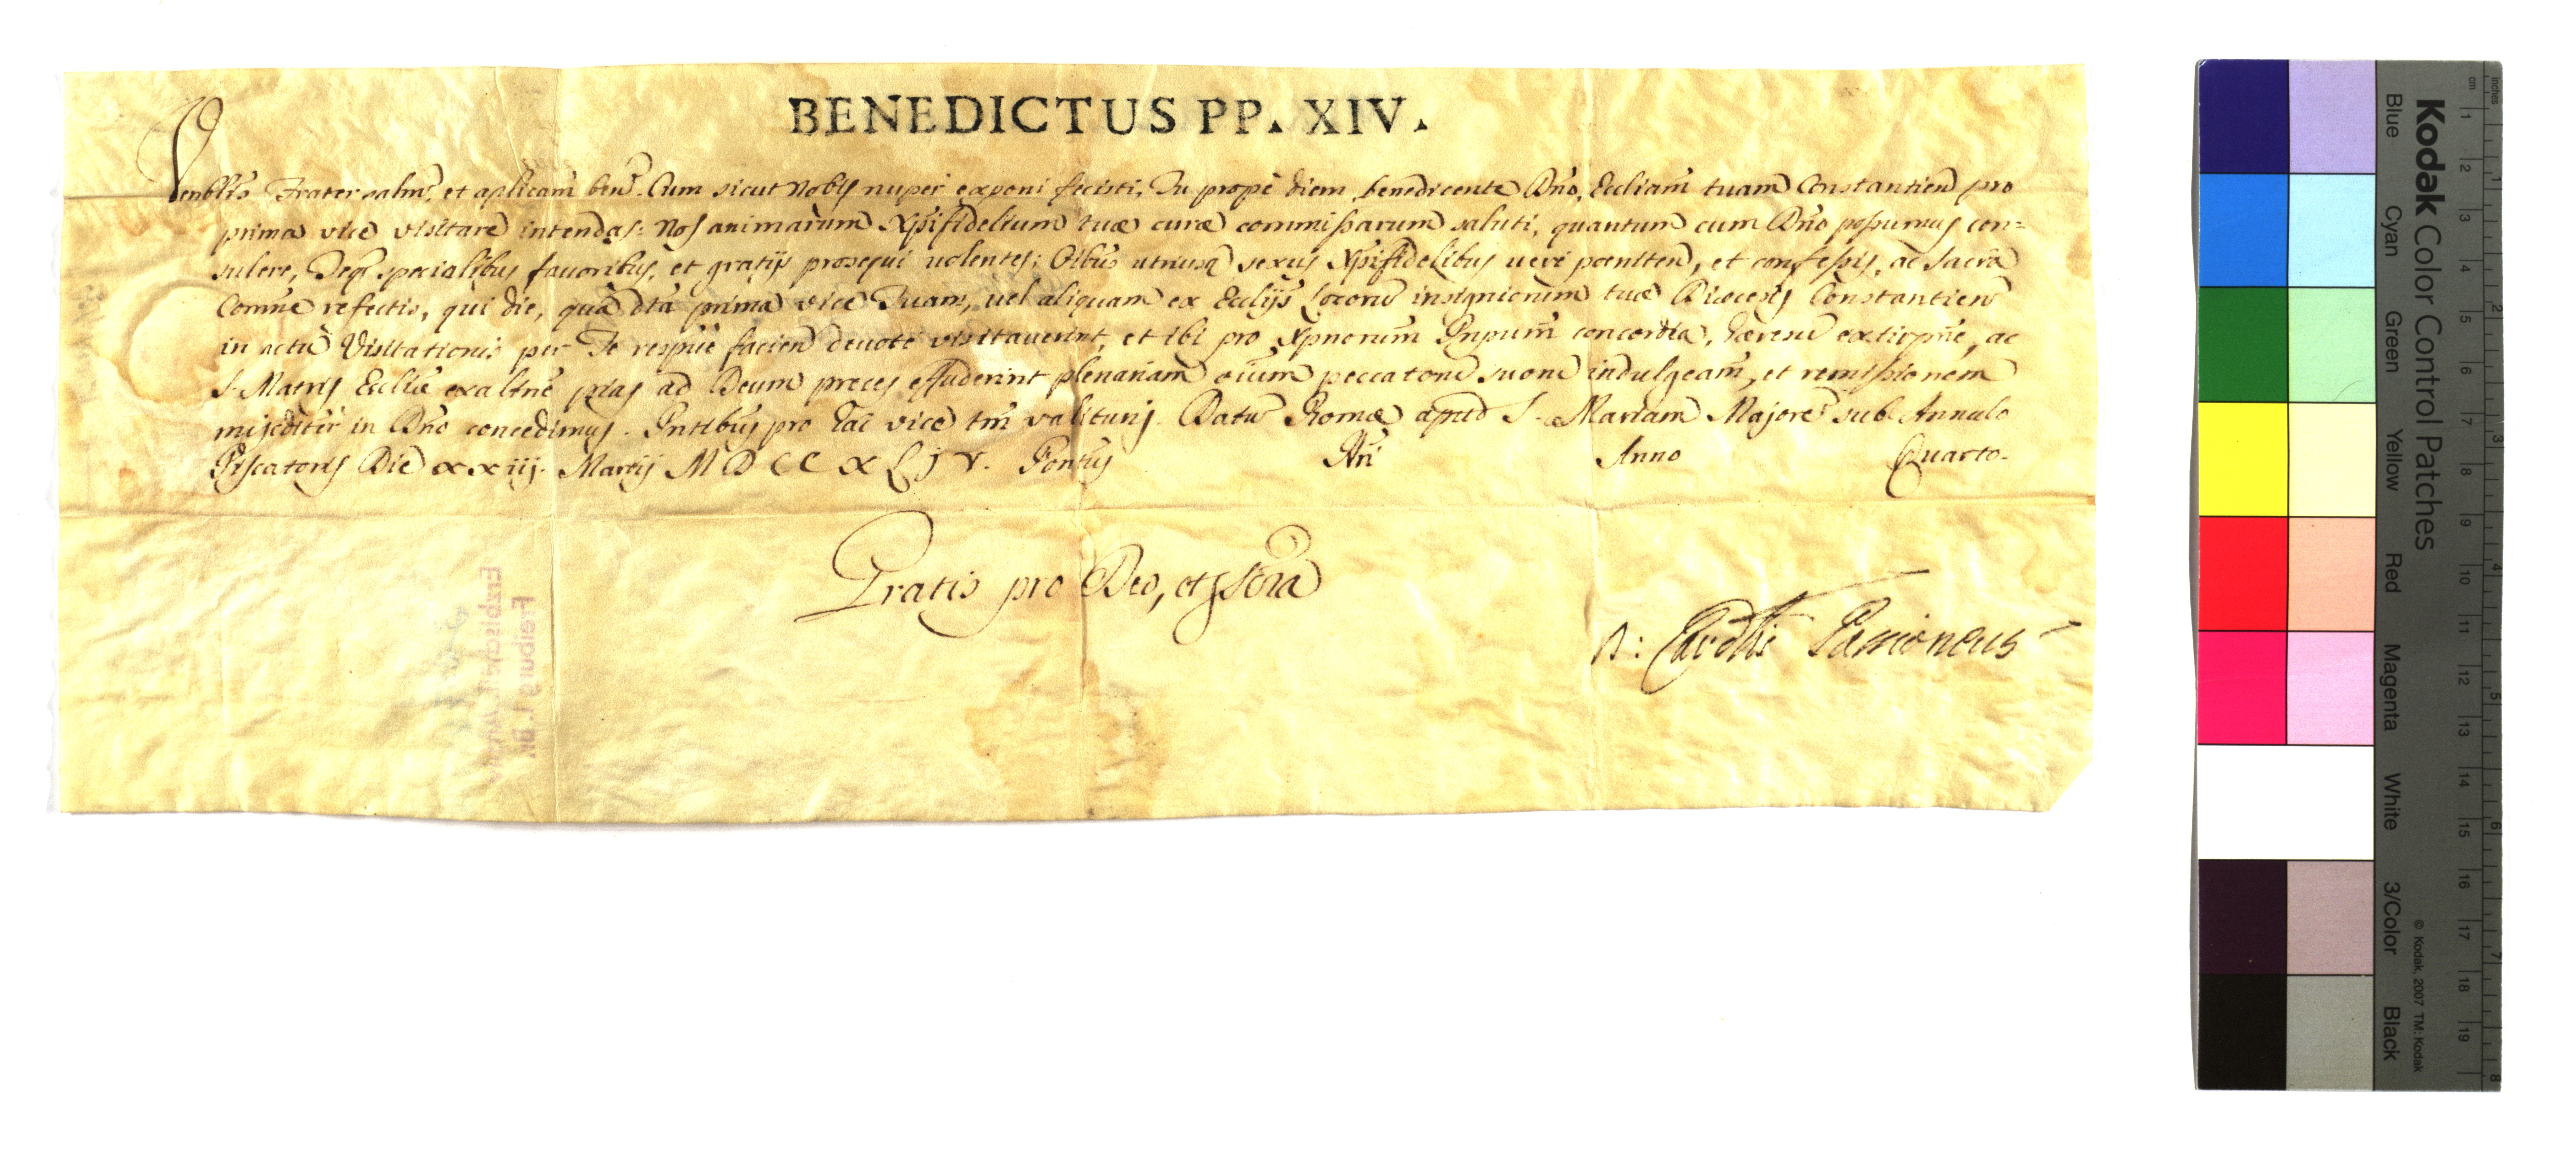 BENEDICTUS PP. XIV.
Venblis Frater salm, et aplicam ben. Cum sicut Nobis nuper exponi fecisti, Tu prope diem, benedicente Dno, Eccliam tuam Constantien pro
prima vice visitare intendas: Nos animarum Xpifidelium tuæ curæ commissarum saluti, quantum cum Dno possumus con=
sulere, Teq specialibus favoribus, et gratijs prosequi volentes; Oibus utriusq sexus Xpifidelibus vere poeniten, et confessis, ac sacra
Comne refectis, qui die, qua dta prima vice Tuam, vel aliquam ex Eccliis Locorum insigniorum tuæ Diœcesis Constantien
in actu Visitationis per Te respive facien devote visitaverint, et ibi pro Xpnorum Pnpum concordia, hæresu extirpne, ac
S. Matris Ecclie exaltne pias ad Deum preces effuderint plenariam oium peccatorum suorum indulgeam, et remissionem
miscditer in Dno concedimus. Pntibus pro hac vice tm valituris. Datum Romæ apud S. Mariam Majorem sub Annulo
Piscatoris Die xxiij. Martij MDCCXLIV. Pontus Nri Anno Quarto.
Gratis pro Deo, et
D: Cardlis Passioneus
Freiburg i. Br.
Kodak Color Control Patches
Blue Cyan Green Yellow Red Magenta White 3/Color Black
© Kodak, 2007 TM: Kodak
inches 1 2 3 4 5 6 7 8
cm 1 2 3 4 5 6 7 8 9 10 11 12 13 14 15 16 17 18 19